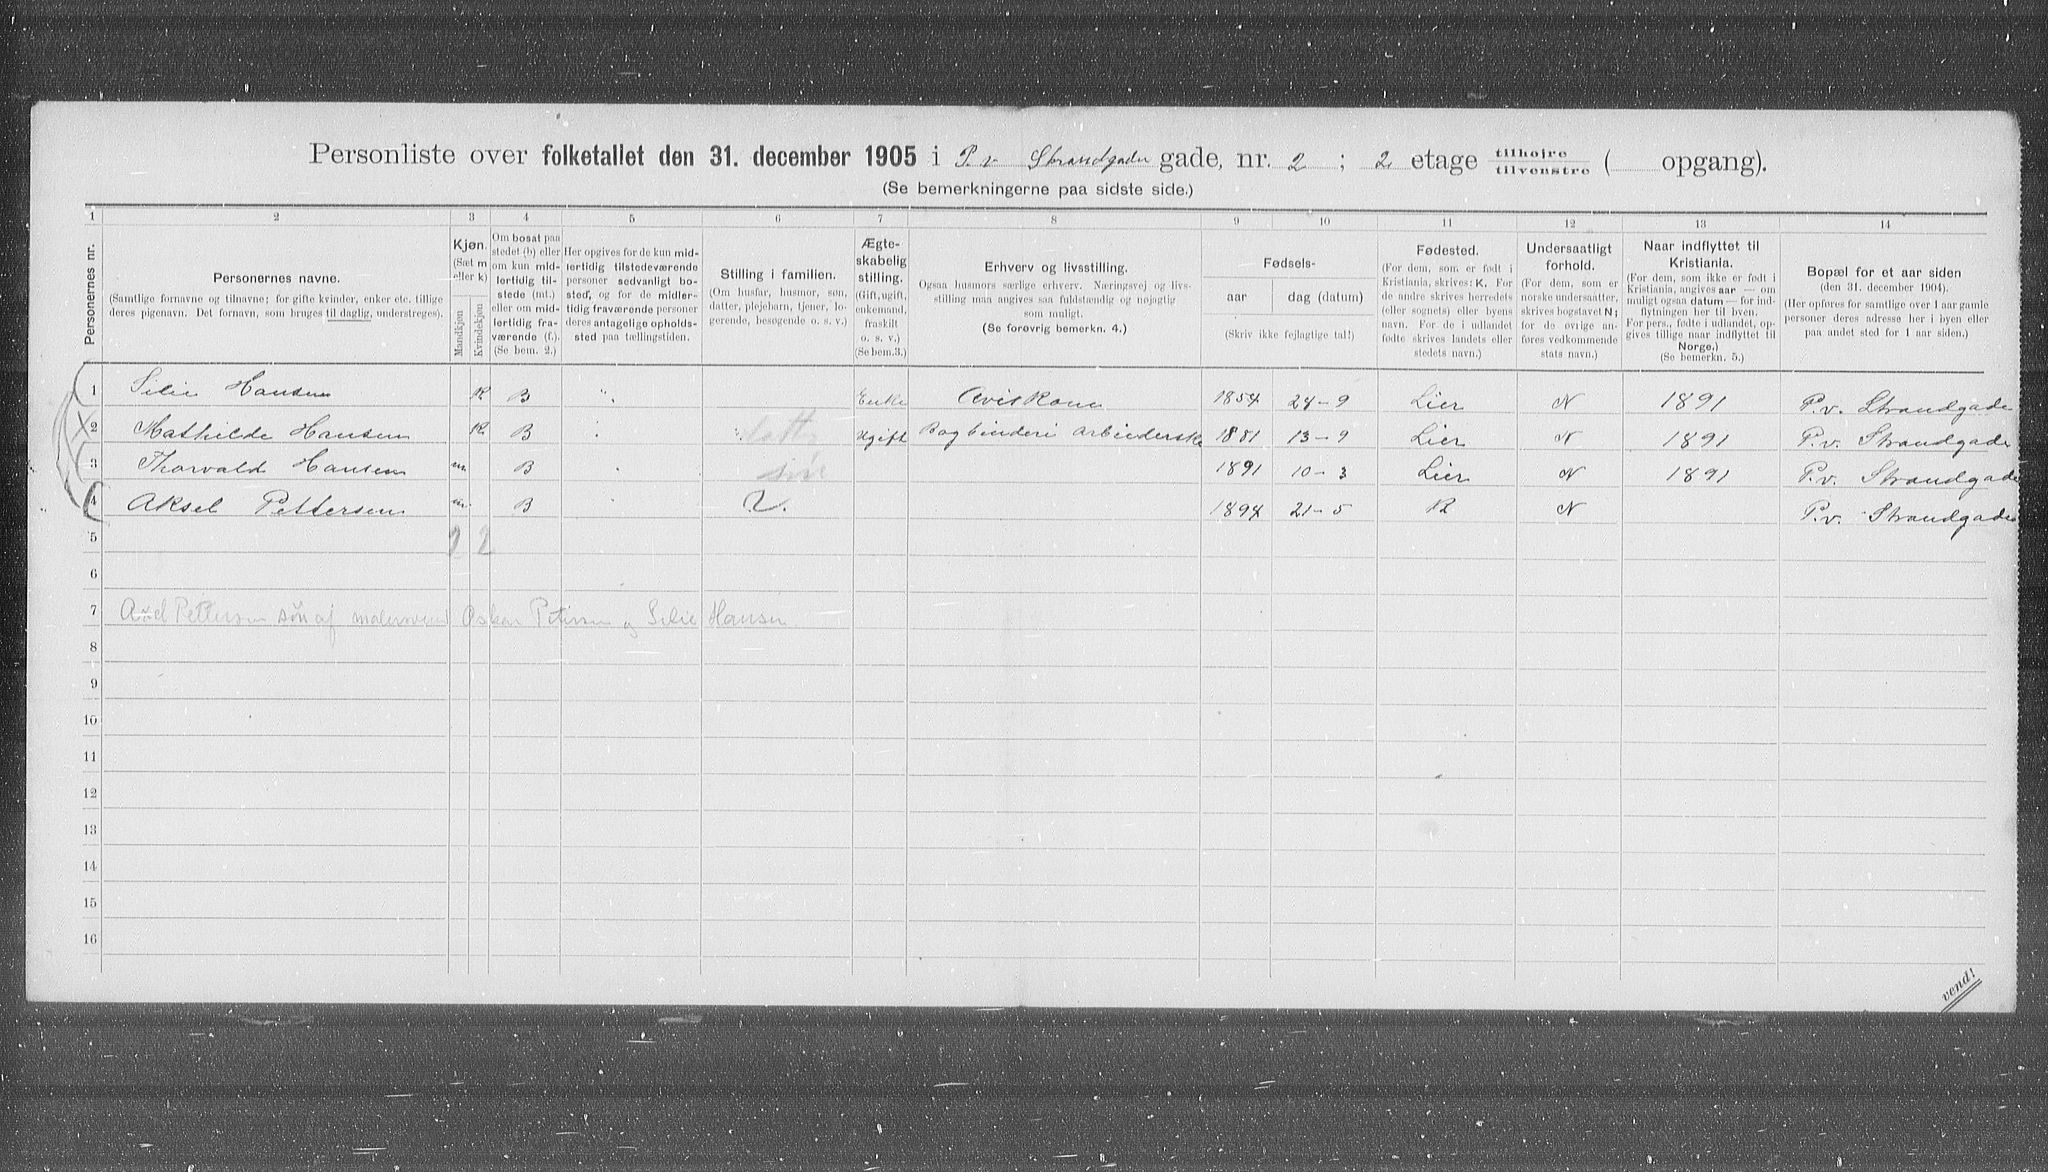 Personliste over folketallet den 31. december 1905 i P. v. Strandgaden gade, nr. 2 ; 2 etage tilhøjre tilvenstre ( opgang).
(Se bemerkningerne paa sidste side.)
1 2 3 4 5 6 7 8 9 10 11 12 13 14
Personernes nr.
Personernes navne.
(Samtlige fornavne og tilnavne; for gifte kvinder, enker etc. tillige
deres pigenavn. Det fornavn, som bruges til daglig, understreges).
Kjøn.
(Sæt m
eller k)
Mandkjøn
Kvindekjøn
Om bosat paa
stedet (b) eller
om kun mid-
lertidig til-
stede (mt.)
eller om mid-
lertidig fra-
værende (f.).
(Se bem. 2.)
Her opgives for de kun mid-
lertidig tilstedeværende
personer sedvanligt bo-
sted, og for de midler-
tidig fraværende personer
deres antagelige opholds-
sted paa tællingstiden.
Stilling i familien.
(Om husfar, husmor, søn,
datter, plejebarn, tjener, lo-
gerende, besøgende o. s. v.)
Ægte-
skabelig
stilling.
(Gift, ugift,
enkemand,
fraskilt
o. s. v.)
(Se bem.3.)
Erhverv og livsstilling.
Ogsaa husmors særlige erhverv. Næringsvej og livs-
stilling maa angives saa fuldstændig og nøjagtig
som muligt.
(Se forøvrig bemerkn. 4.)
Fødsels-
aar
dag (datum)
(Skriv ikke fejlagtige tal!)
Fødested.
(For dem, som er født i
Kristiania, skrives: K. For
de andre skrives herredets
(eller sognets) eller byens
navn. For de i udlandet
fødte skrives landets eller
stedets navn.)
Undersaatligt
forhold.
(For dem, som er
norske undersaatter,
skrives bogstavet N;
for de øvrige an-
føres vedkommende
stats navn.)
Naar indflyttet til
Kristiania.
(For dem, som ikke er født i
Kristiania, angives aar — om
muligt ogsaa datum — for ind-
flytningen her til byen.
For pers., fødte i udlandet, op-
gives tillige naar indflyttet til
Norge.)
(Se bemerkn. 5.)
Bopæl for et aar siden
(den 31. december 1904).
(Her opføres for samtlige over 1 aar gamle
personer deres adresse her i byen eller
paa andet sted for 1 aar siden.)
1 Silie Hansen K B " Enke Aviskone 1854 24-9 Lier N 1891 P.v. Strandgade
2 Mathilde Hansen K. B " datter Ugift Bogbinderi arbiederske 1881 13-9 Lier N 1891 P.v. Strandgade
3 Thorvald Hansen m B " søn 1891 10-3 Lier N 1891 P.v. Strandgade
4 Aksel Pettersen m. B " 1894 21-5 K N P.v. Strandgade
5 2 2
6
7 Pettersen søn af malersvend Oskar Petersen og Silie Hansen
8
9
10
11
12
13
14
15
16
vend!